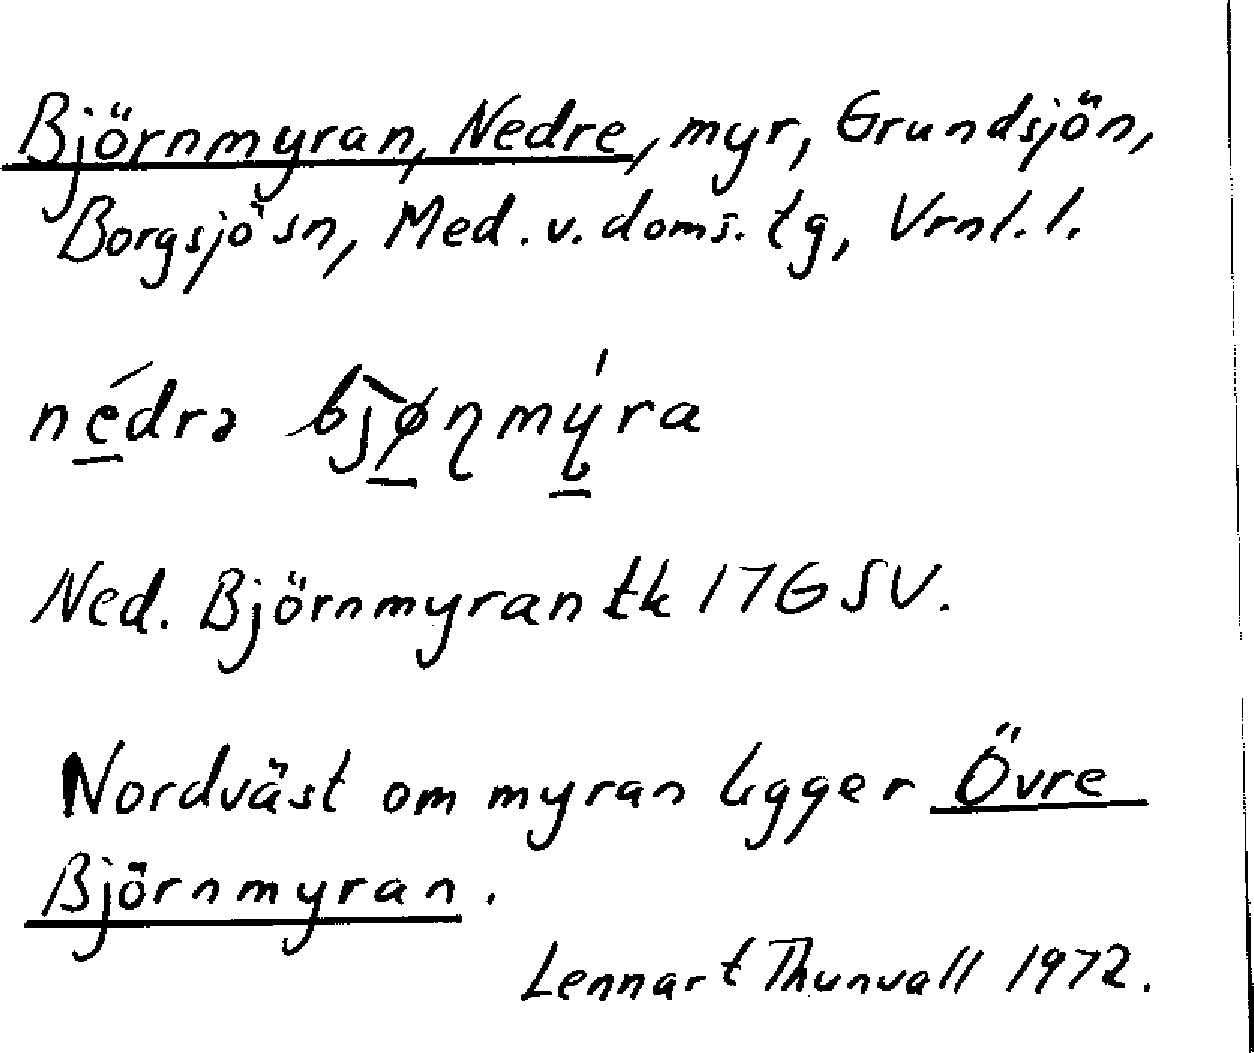 Björnmyran, Nedre, myr, Grundsjön,
Borgsjö sn, Med. v. doms. tg, Vrnl. l.
né̱drə bjø̱̀ɳmý̱ra
Ned. Björnmyran tk 17G SV.
Nordväst om myran ligger Övre
Björnmyran.
Lennart Thunvall 1972.